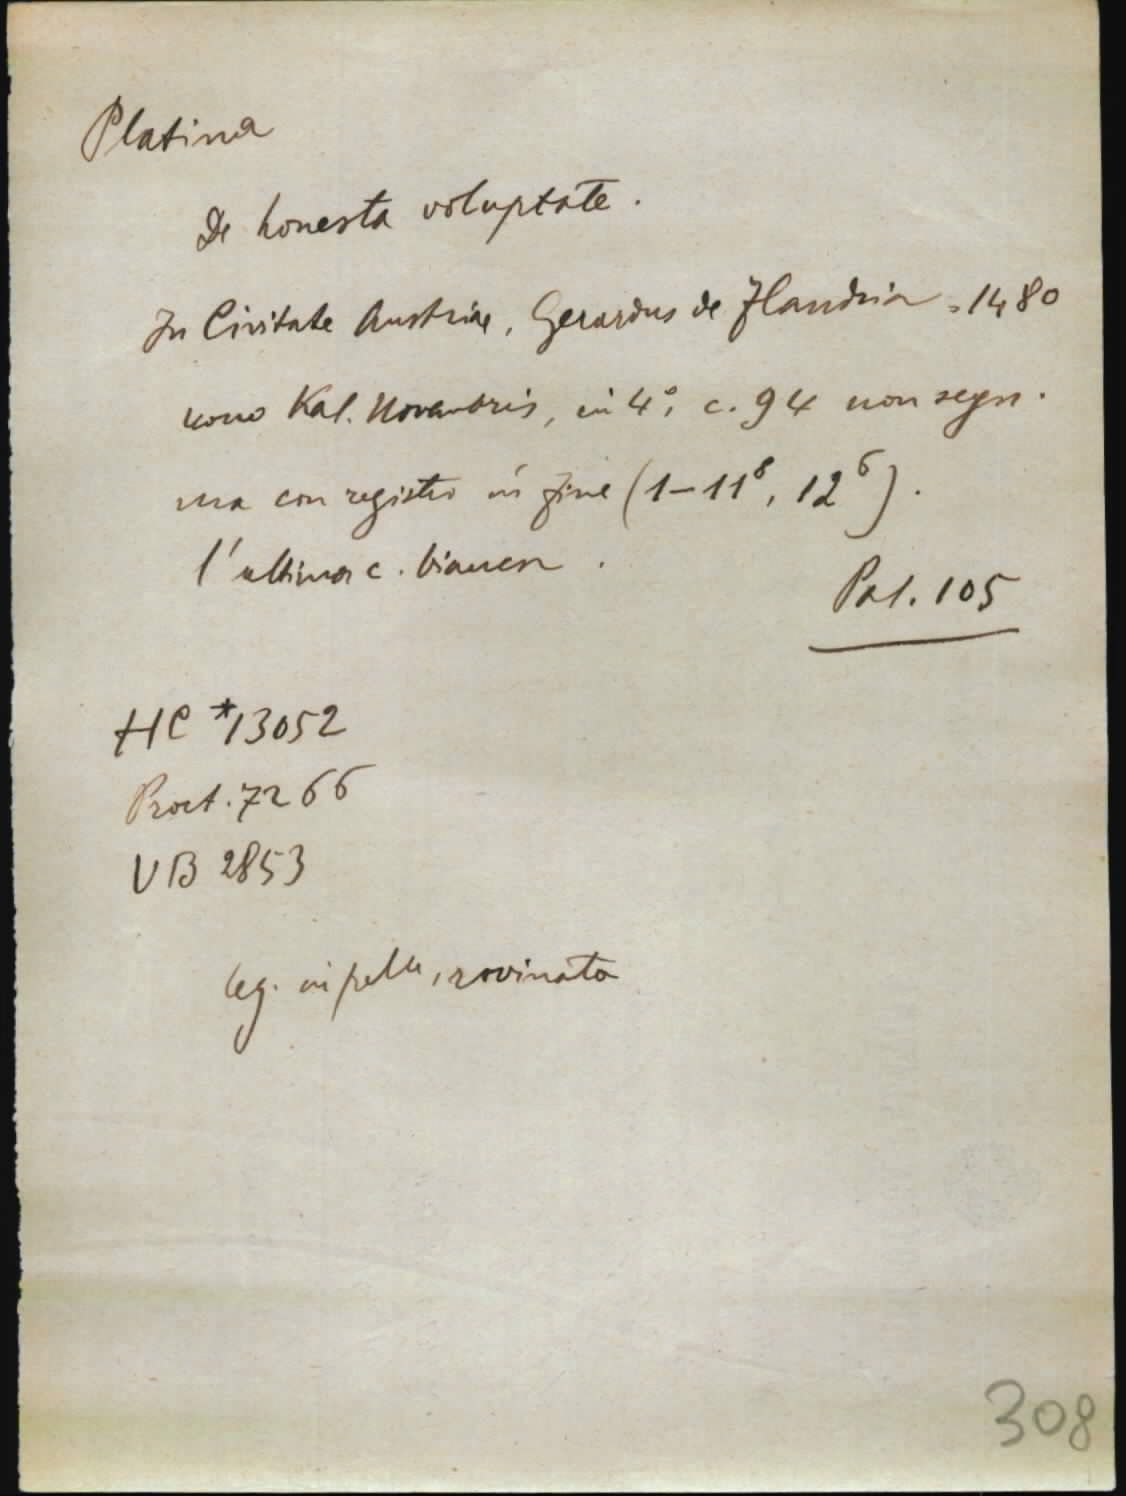 Platina
De honesta voluptate.
In Civitate Austriae, Gerardus de Flandria, 1480
nono Kal. Novembris, in 4°, c. 94 non segn.
ma con registro in fine (1-11⁸, 12⁶).
l'ultima c. bianca.
Pal. 105
HC *13052
Proct. 7266
VB 2853
leg. in pelle, rovinata
308